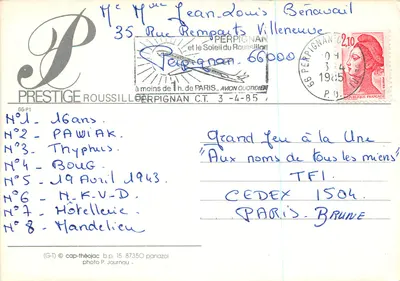 Mc Mme Jean-Louis Bénavail
35 Rue Remparts Villeneuve
Perpignan 66000
PERPIGNAN
et le Soleil du Roussillon
à moins de 1 h. de PARIS, AVION QUOTIDIEN
PERPIGNAN C.T. 3-4-85
66 PERPIGNAN
1985
P.O.
2,10
P
PRESTIGE ROUSSILLON
N°1 - 16 ans
N°2 - PAWIAK
N°3 - Thyphus
N°4 - BOUG
N°5 - 19 Avril 1943
N°6 - N.K.V.D
N°7 - Hôtellerie
N°8 - Mandelieu
Grand Jeu à la Une
"Aux noms de tous les miens"
TF1
CEDEX 1504
PARIS BRUNE
(G-T) © cap-théojac b.p. 15 87350 panazol
photo P. Journou